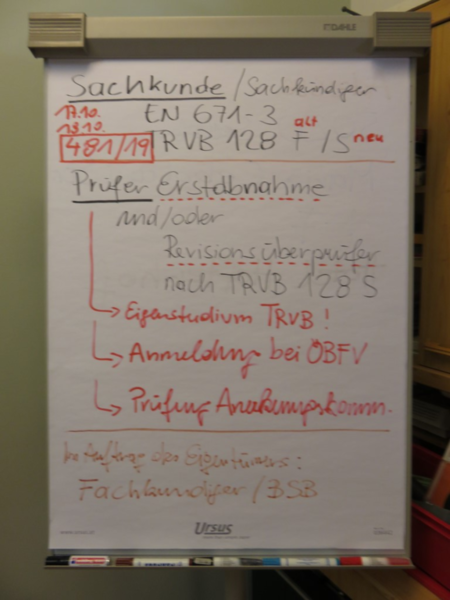 DAHLE
Sachkunde / Sachkündiger
17.10.
18.10.
EN 671-3
alt
481/19
TRVB 128 F / S neu
Prüfer Erstabnahme
und/oder
Revisionsüberprüfer
nach TRVB 128 S
Eigenstudium TRVB !
Anmeldung bei ÖBFV
Prüfung Anerkennungskomm.
Im Auftrag des Eigentümers:
Fachkundiger / BSB
Ursus